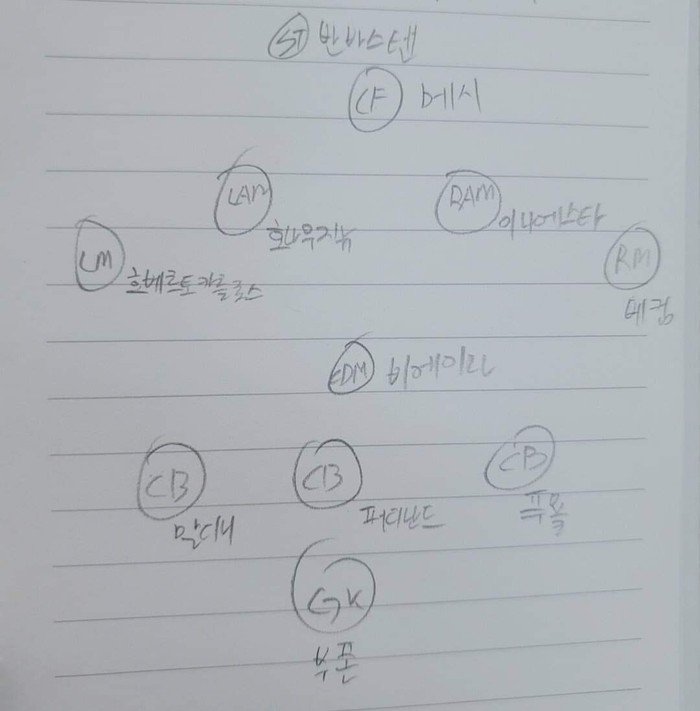 ST 반바스텐
CF 메시
LAM
호나우지뉴
RAM
이니에스타
LM
호베르토카를로스
RM
베컴
CDM 비에이라
CB
말디니
CB
퍼디난드
CB
푸욜
GK
부폰